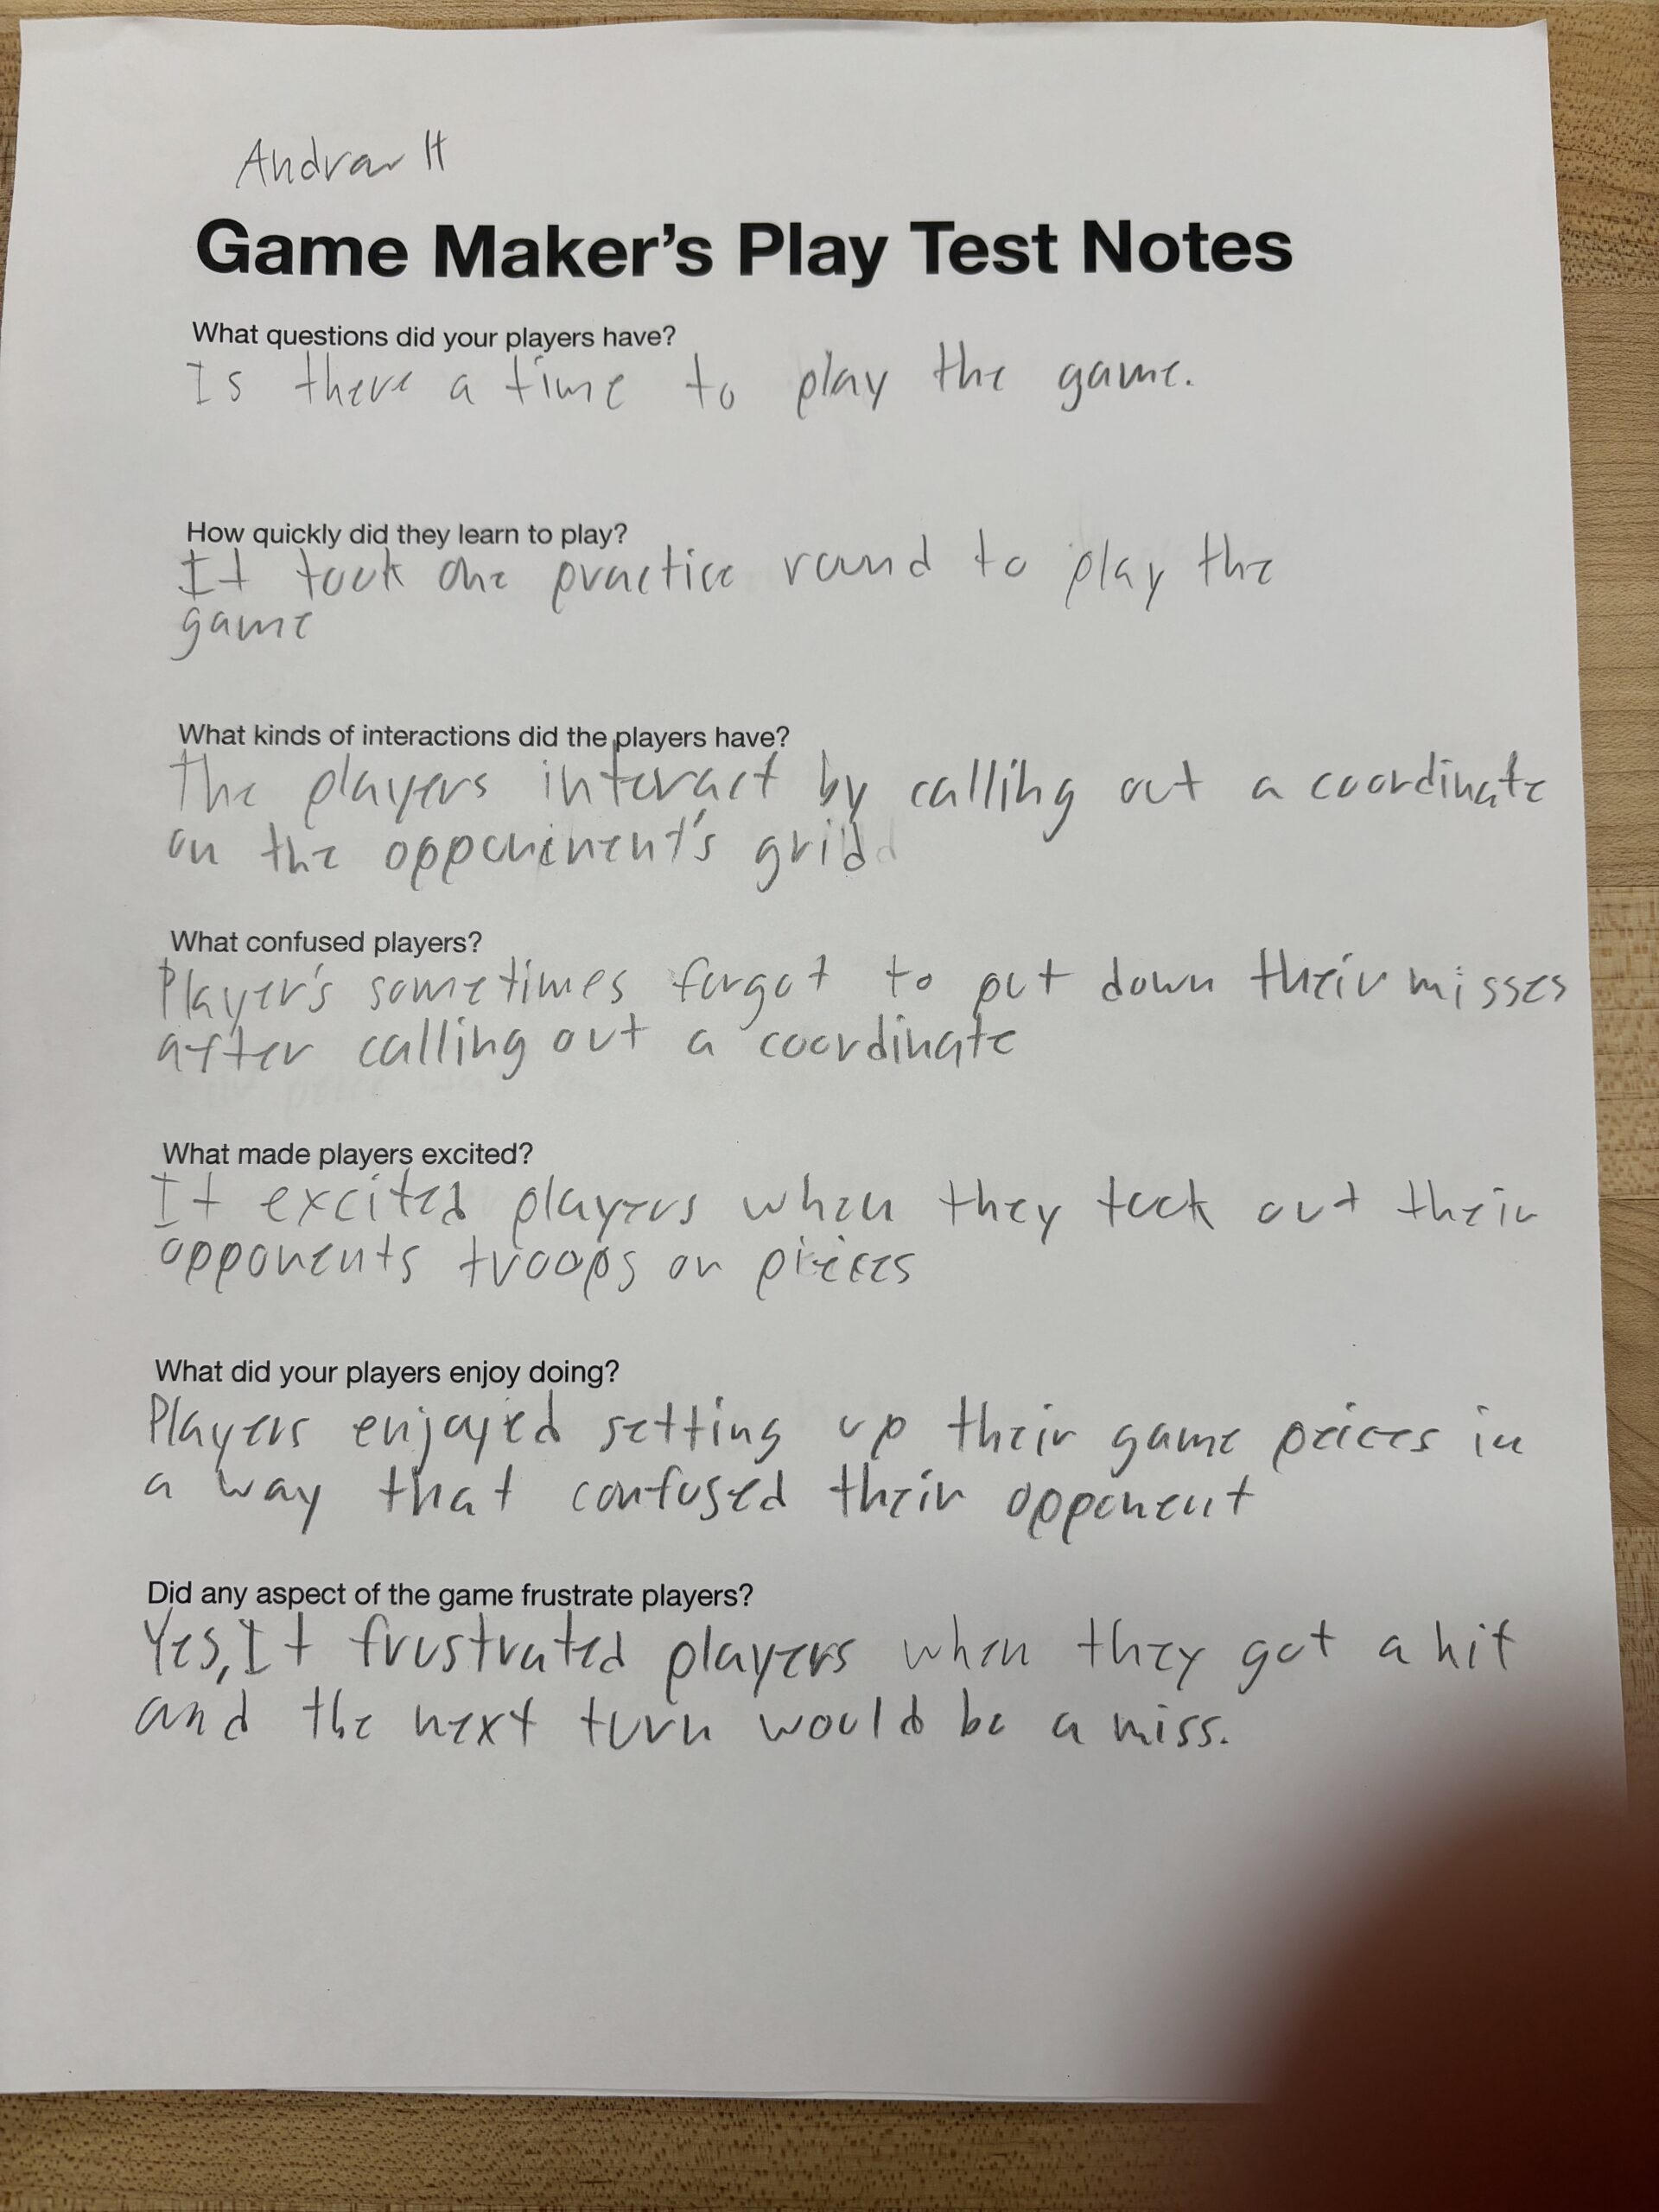 Andrew H
Game Maker's Play Test Notes
What questions did your players have?
Is there a time to play the game.
How quickly did they learn to play?
It took one practice round to play the
game
What kinds of interactions did the players have?
The players interact by calling out a coordinate
on the opponinent's grid
What confused players?
Player's sometimes forgot to put down their misses
after calling out a coordinate
What made players excited?
It excited players when they took out their
opponents troops or pieces
What did your players enjoy doing?
Players enjoyed setting up their game peices in
a way that confused their opponent
Did any aspect of the game frustrate players?
Yes, It frustrated players when they got a hit
and the next turn would be a miss.